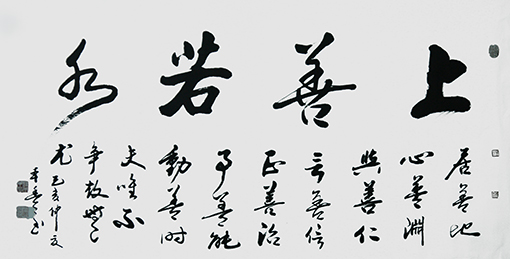 上善若水
居善地
心善渊
與善仁
言善信
正善治
事善能
動善时
夫唯不
争故無
尤
己亥仲夏